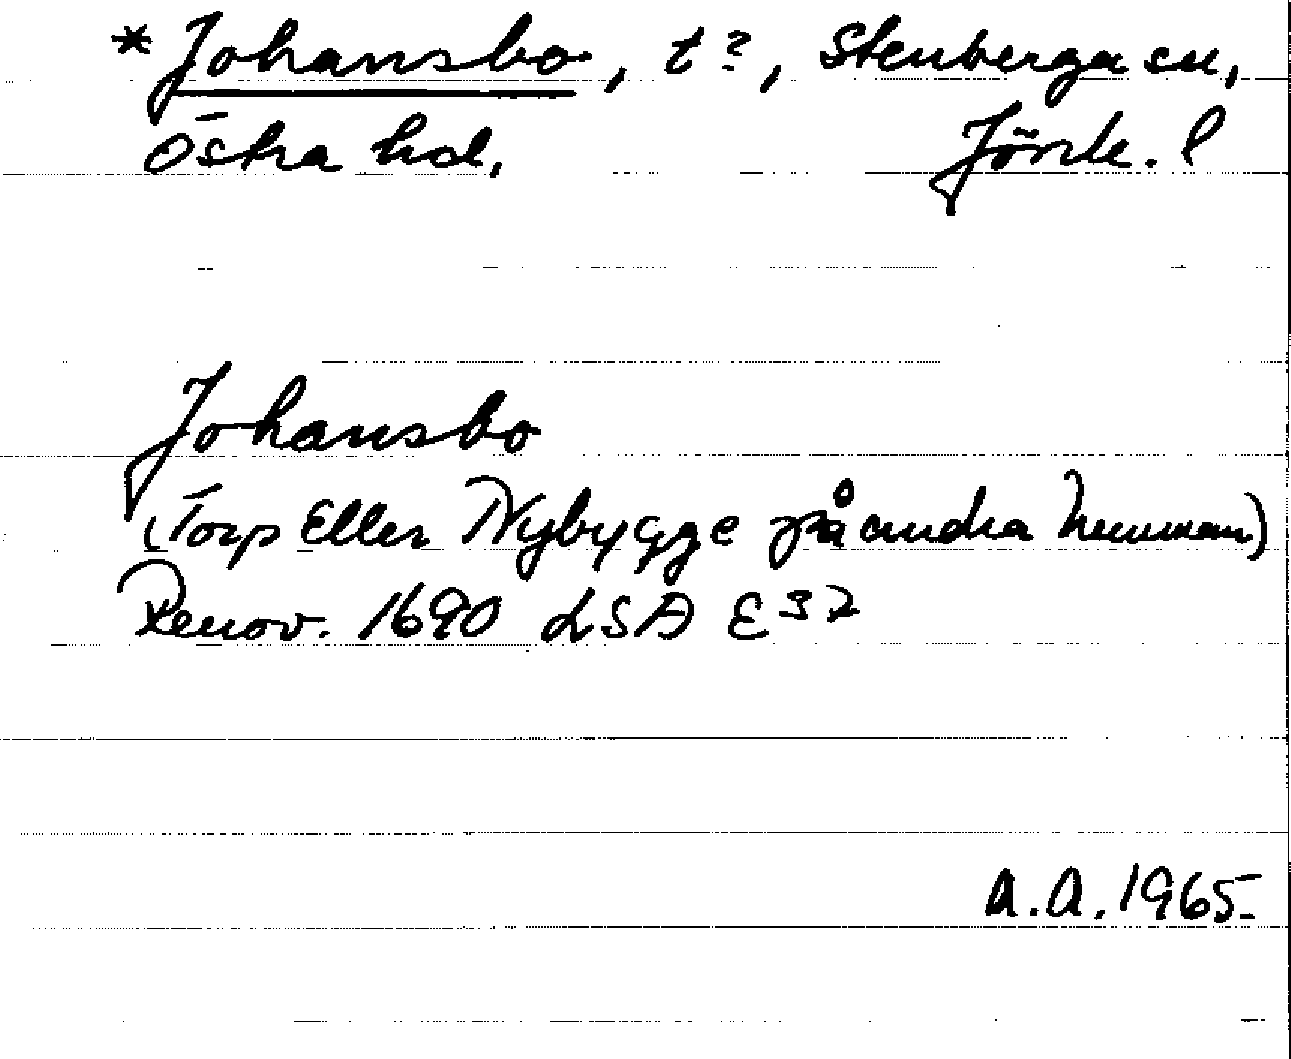 *Johansbo, t?, Stenberga sn,
Östra hd, Jönk. l
Johansbo
(Torp Eller Nybygge på andra hemman)
Renov. 1690 LSA E37
A.A. 1965